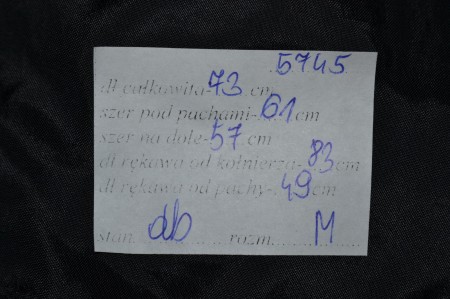 5745
dł całkowita-73 cm
szer pod pachami-61 cm
szer na dole-57 cm
dł rękawa od kołnierza-83 cm
dł rękawa od pachy-49 cm
stan db rozm. M